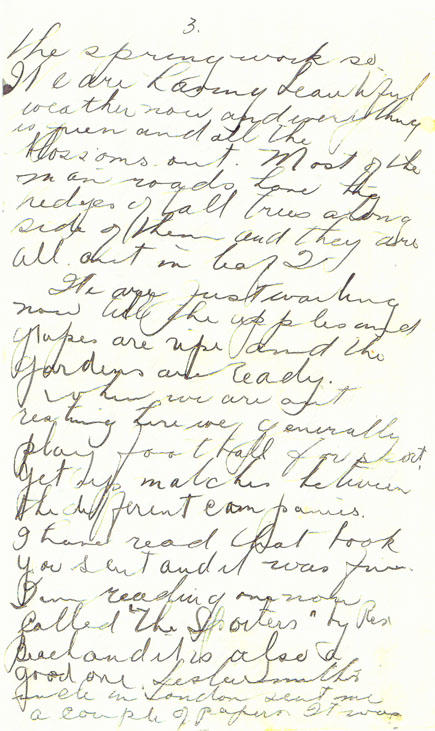 3.
the spring work so.
We are having beautiful
weather now and everything
is green and all the
blossoms out. Most of the
main roads have big
hedges of tall trees along
side of them and they are
all out in leaf
We are just waiting
now till the apples and
grapes are ripe and the
gardens are ready.
When we are out
resting here we generally
play football for sport
get up matches between
the different companies.
I have read that book
you sent and it was fine.
I am reading one now
called "The Spoilers" by Rex
Beach and it is also a
good one. Lester Smith's
uncle in London sent me
a couple of papers. It was